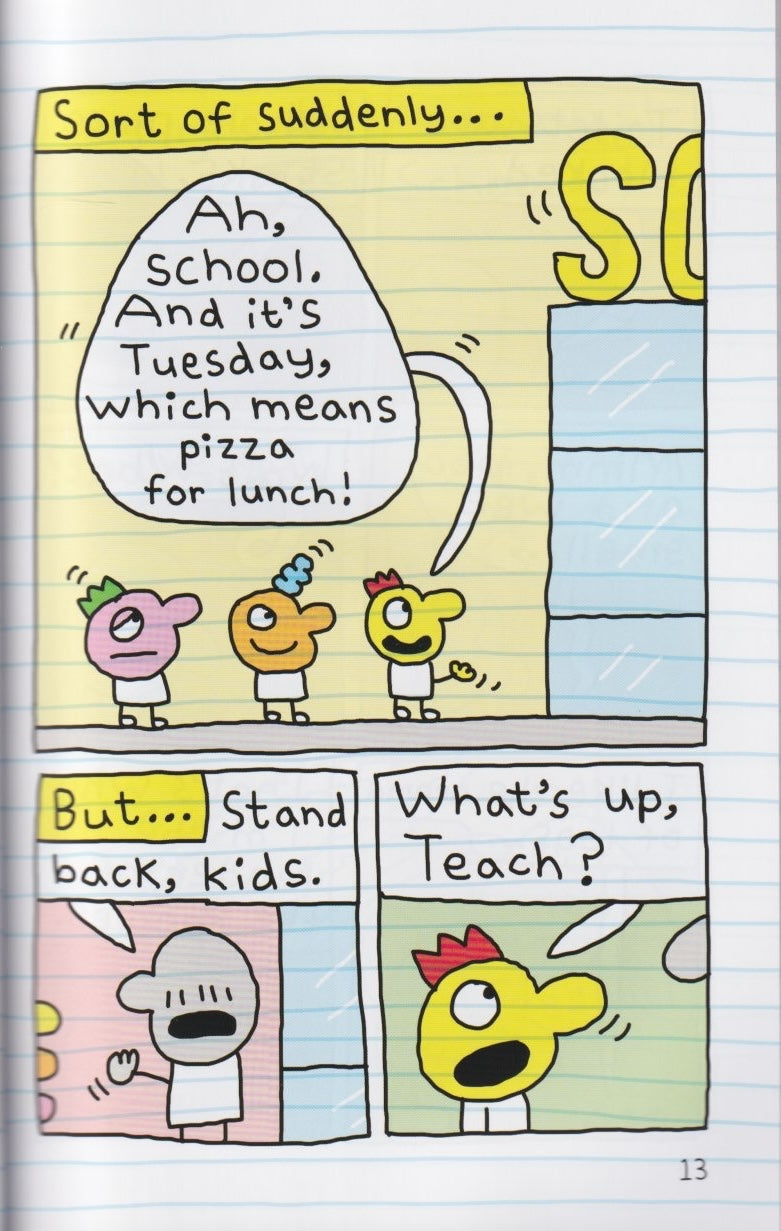 Sort of suddenly...
SC
Ah,
school.
And it's
Tuesday,
which means
pizza
for lunch!
But... Stand
back, kids.
What's up,
Teach?
13